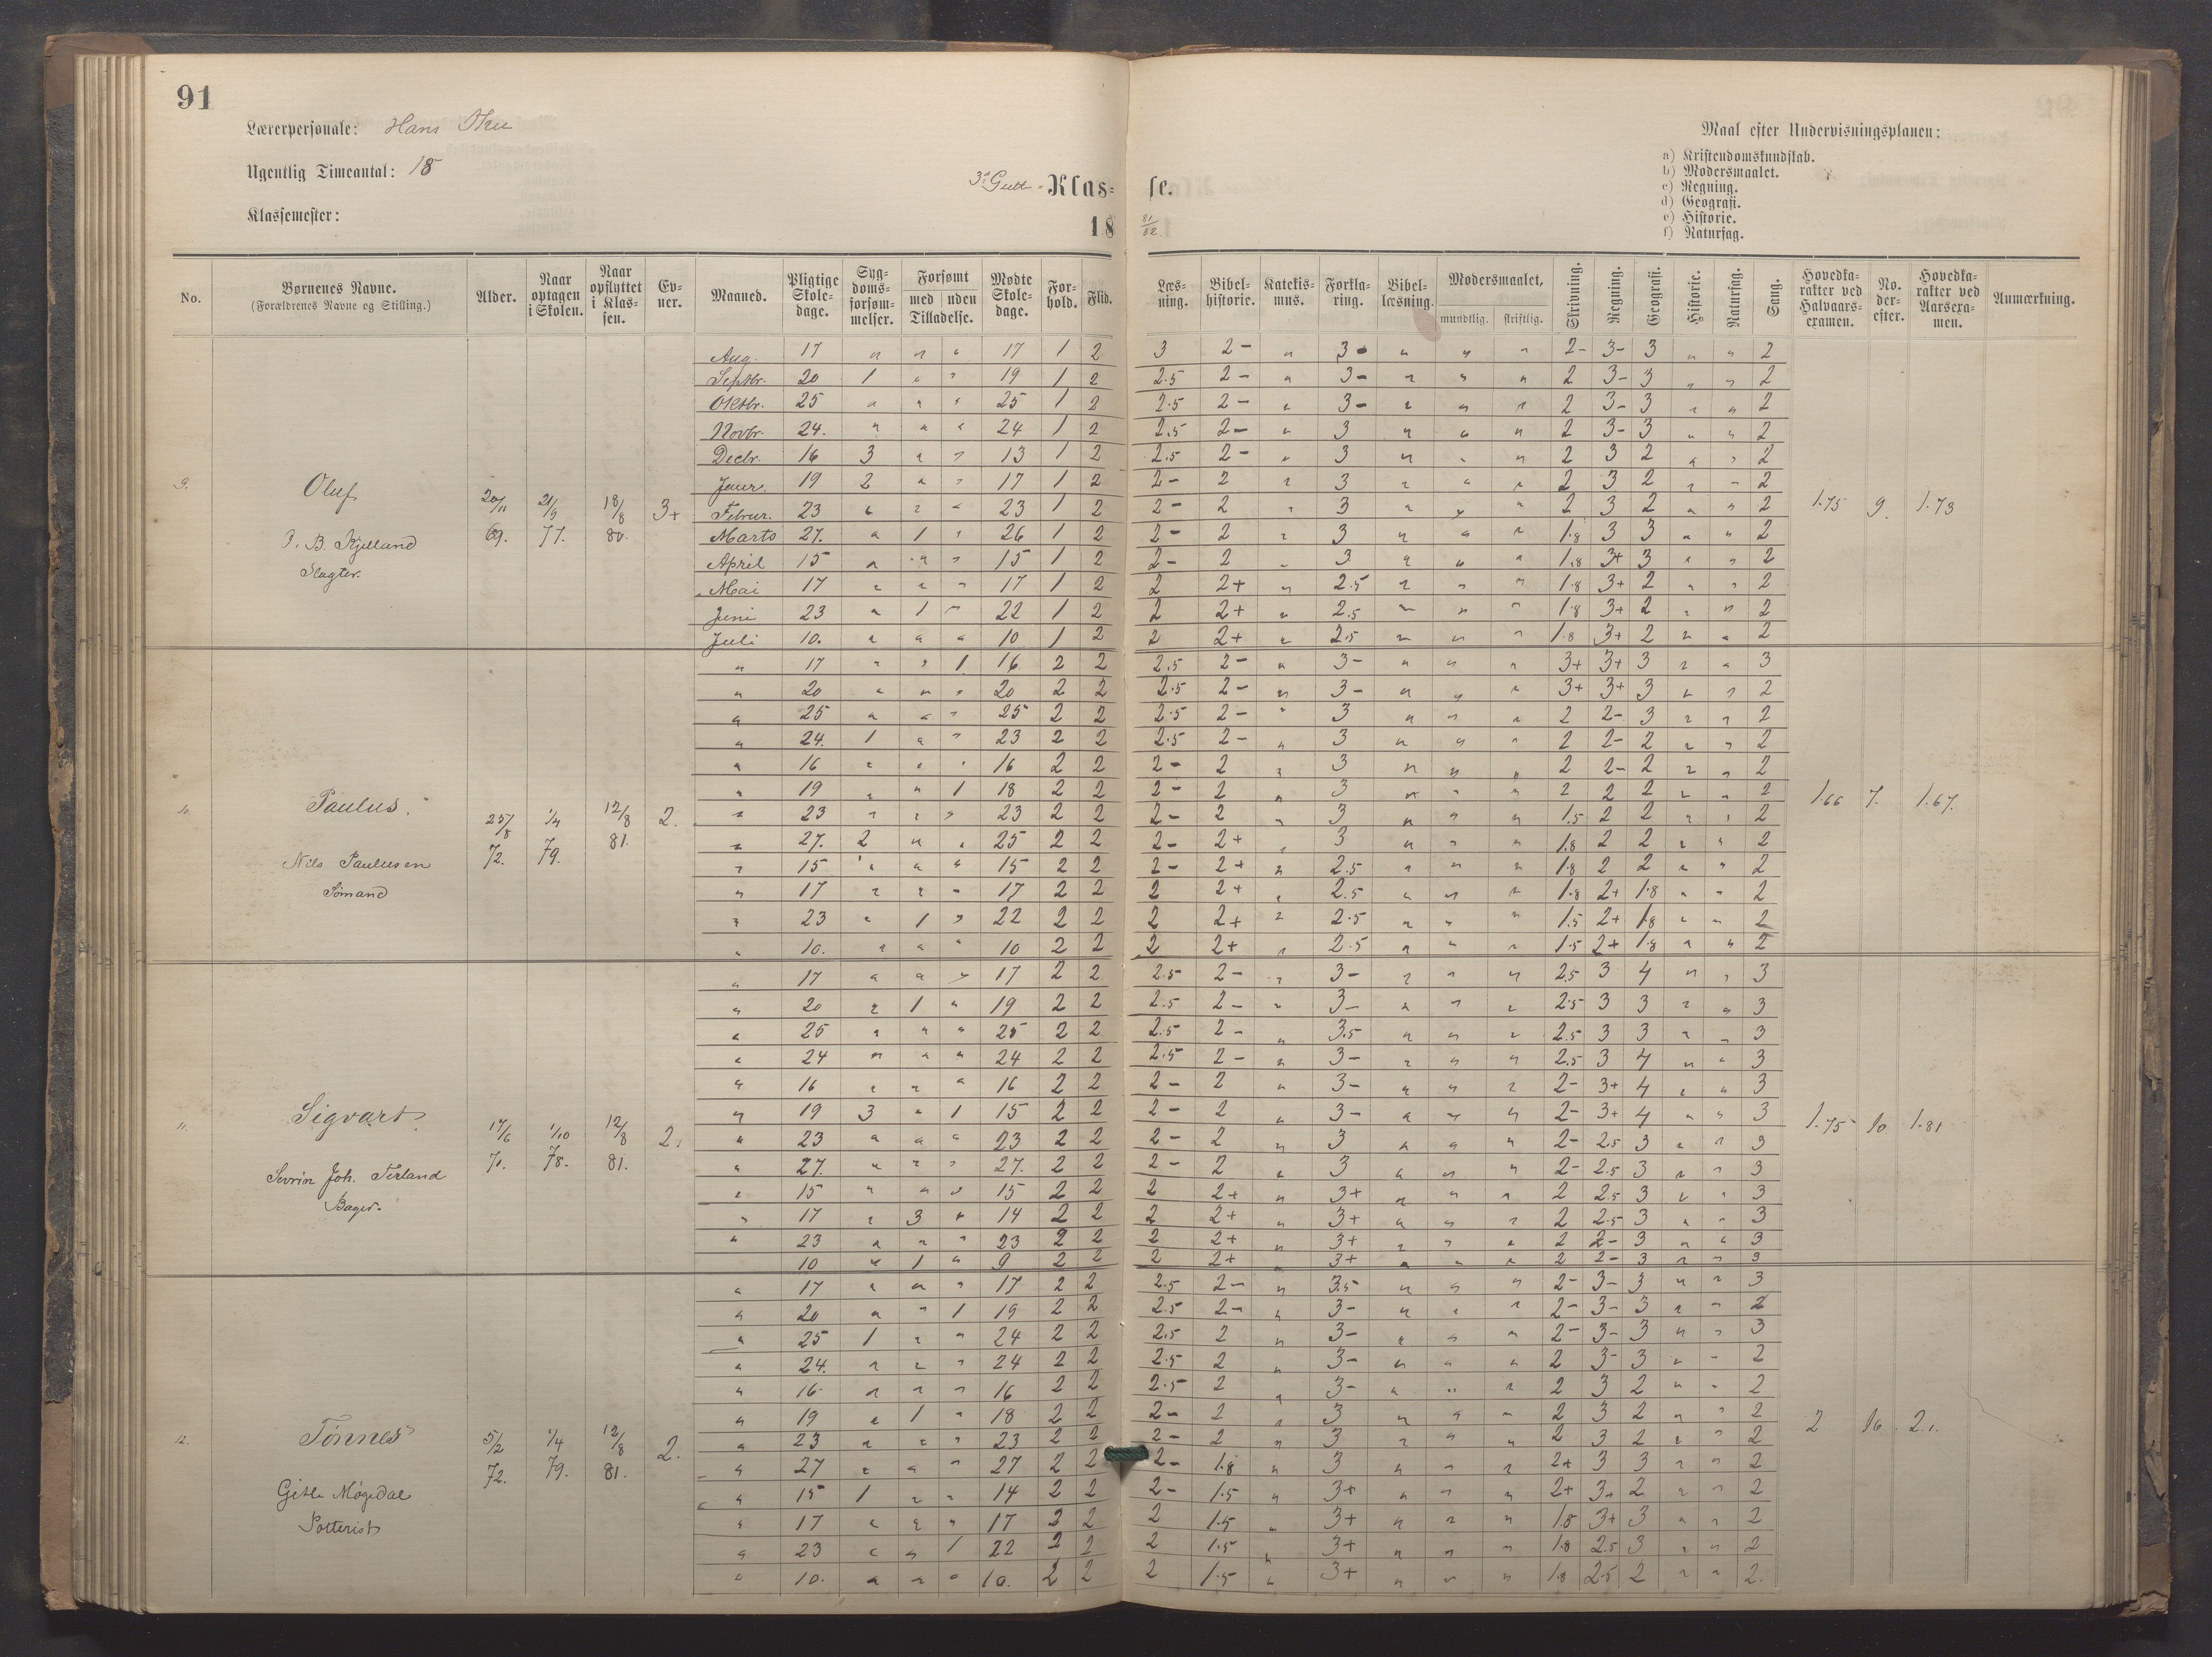 91
Lærerpersonale: Hans
Ugentlig Timeantal: 18
Klassemester:
3d Gutt. Klas= se.
18 81/82
Maal efter Undervisningsplanen:
a) Kristendomskundskab.
b) Modersmaalet.
c) Regning.
d) Geografi.
e) Historie.
f) Naturfag.
No. Børnenes Navne. (Forældrenes Navne og Stilling.) Alder. Naar optagen i Skolen. Naar opflyttet i Klas=sen. Ev=ner. Maaned. Pligtige Skole=dage. Syg=doms=forsøm=melser. Forsømt med uden Tilladelse. Mødte Skole=dage. For=hold. Flid. Læs=ning. Bibel=historie. Katekis=mus. Forkla=ring. Bibel=læsning. Modersmaalet, mundtlig. skriftlig. Skrivning. Regning. Geografi. Historie. Naturfag. Sang. Hovedka=rakter ved Halvaars=examen. No. der=efter. Hovedka=rakter ved Aarsexa=men. Anmærkning.
Aug. 17 " " " 17 1 2 3 2- " 3- " " " 2- 3- 3 " " 2
Septbr. 20 1 " " 19 1 2 2.5 2- " 3- " " " 2 3- 3 " " 2
Oktbr. 25 " " " 25 1 2 2.5 2- " 3- " " " 2 3- 3 " " 2
Novbr. 24. " " " 24 1 2 2.5 2- " 3 " " " 2 3- 3 " " 2
Decbr. 16 3 " " 13 1 2 2.5 2- " 3 " " " 2 3 2 " " 2
9. Oluf Janr. 19 2 " " 17 1 2 2- 2 " 3 " " " 2 3 2 " " 2
20/11 21/9 18/8 3+ Februr. 23 " " " 23 1 2 2- 2 " 3 " " " 2 3 2 " " 2 1.75 9. 1.73
J. B. Kjelland 69. 77. 80. Marts 27. " 1 " 26 1 2 2- 2 " 3 " " " 1.8 3 3 " " 2
Slagter. April 15 " " " 15 1 2 2- 2 " 3 " " " 1.8 3+ 3 " " 2
Mai 17 " " " 17 1 2 2 2+ " 2.5 " " " 1.8 3+ 2 " " 2
Juni 23 " 1 " 22 1 2 2 2+ " 2.5 " " " 1.8 3+ 2 " " 2
Juli 10. " " " 10 1 2 2 2+ " 2.5 " " " 1.8 3+ 2 " " 2
" 17 " " 1 16 2 2 2.5 2- " 3- " " " 3+ 3+ 3 " " 3
" 20 " " " 20 2 2 2.5 2- " 3- " " " 3+ 3+ 3 " " 2
" 25 " " " 25 2 2 2.5 2- " 3 " " " 2 2- 3 " " 2
" 24. 1 " " 23 2 2 2.5 2- " 3 " " " 2 2- 2 " " 2
" 16 " " " 16 2 2 2- 2 " 3 " " " 2 2- 2 " " 2
10. Paulus. " 19 " " 1 18 2 2 2- 2 " 3 " " " 2 2 2 " " 2 1.66 7. 1.67.
25/8 1/4 12/8 2. " 23 " " " 23 2 2 2- 2 " 3 " " " 1.5 2 2 " " 2
72. 79. 81. " 27. 2 " " 25 2 2 2- 2+ " 3 " " " 1.8 2 2 " " 2
Nils Paulusen " 15 " " " 15 2 2 2- 2+ " 2.5 " " " 1.8 2 2 " " 2
Sømand " 17 " " " 17 2 2 2 2+ " 2.5 " " " 1.8 2+ 1.8 " " 2
" 23 " 1 " 22 2 2 2 2+ " 2.5 " " " 1.5 2+ 1.8 " " 2
" 10. " " " 10 2 2 2 2+ " 2.5 " " " 1.5 2+ 1.8 " " 2
" 17 " " " 17 2 2 2.5 2- " 3- " " " 2.5 3 4 " " 3
" 20 " 1 " 19 2 2 2.5 2- " 3- " " " 2.5 3 3 " " 3
" 25 " " " 25 2 2 2.5 2- " 3.5 " " " 2.5 3 3 " " 3
" 24 " " " 24 2 2 2.5 2- " 3- " " " 2.5 3 4 " " 3
" 16 " " " 16 2 2 2- 2 " 3- " " " 2- 3+ 4 " " 3
11. Sigvart " 19 3 " 1 15 2 2 2- 2 " 3- " " " 2- 3+ 4 " " 3
17/6 1/10 12/8 2. " 23 " " " 23 2 2 2- 2 " 3 " " " 2- 2.5 3 " " 3 1.75 10. 1.81
71. 78. 81. " 27. " " " 27. 2 2 2- 2 " 3 " " " 2- 2.5 3 " " 3
Sevrin Joh. Terland " 15 " " " 15 2 2 2 2+ " 3+ " " " 2 2.5 3 " " 3
Bager. " 17 " 3 " 14 2 2 2 2+ " 3+ " " " 2 2.5 3 " " 3
" 23 " " " 23 2 2 2 2+ " 3+ " " " 2 2- 3 " " 3
10 " 1 " 9 2 2 2 2+ " 3+ " " " 2 2- 3 " " 3
" 17 " " " 17 2 2 2.5 2- " 3.5 " " " 2- 3- 3 " " 3
" 20 " " 1 19 2 2 2.5 2- " 3- " " " 2- 3- 3 " " 2
" 25 1 " " 24 2 2 2.5 2 " 3- " " " 2- 3- 3 " " 3
" 24. " " " 24 2 2 2.5 2 " 3- " " " 2 3- 3 " " 2
" 16 " " " 16 2 2 2.5 2 " 3- " " " 2 3 2 " " 2
" 19 " 1 " 18 2 2 2- 2 " 3 " " " 2 3 2 " " 2
12. Tönnes 5/2 1/4 12/8 2. " 23 " " " 23 2 2 2- 2 " 3 " " " 2 3 2 " " 2 2 16. 2.1.
72. 79. 81. " 27 " " " 27 2 2 2- 1.8 " 3 " " " 2+ 3 3 " " 2
Gitle Møgedal " 15 1 " " 14 2 2 2- 1.5 " 3+ " " " 2+ 3+ 2 " " 2
Potterist " 17 " " " 17 2 2 2 1.5 " 3+ " " " 1.8 3+ 3 " " 2
" 23 " " 1 22 2 2 2 1.5 " 3+ " " " 1.8 2.5 3 " " 2
" 10. " " " 10. 2 2 2 1.5 " 3+ " " " 1.8 2.5 2 " " 2.